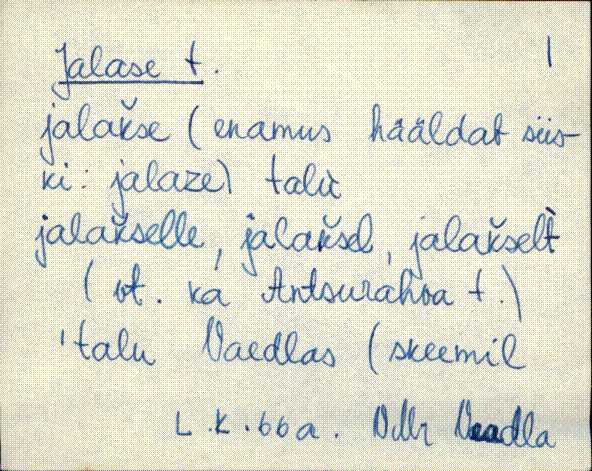 Jalase t. 1
jalak̆se (enamus hääldat siis-
ki: jalaze) talù
jalak̆selle, jalak̆sel, jalak̆selt̀
(vt. ka Antsurahva t.)
'talu Vaedlas (skeemil
L.K. 66a. Vadla